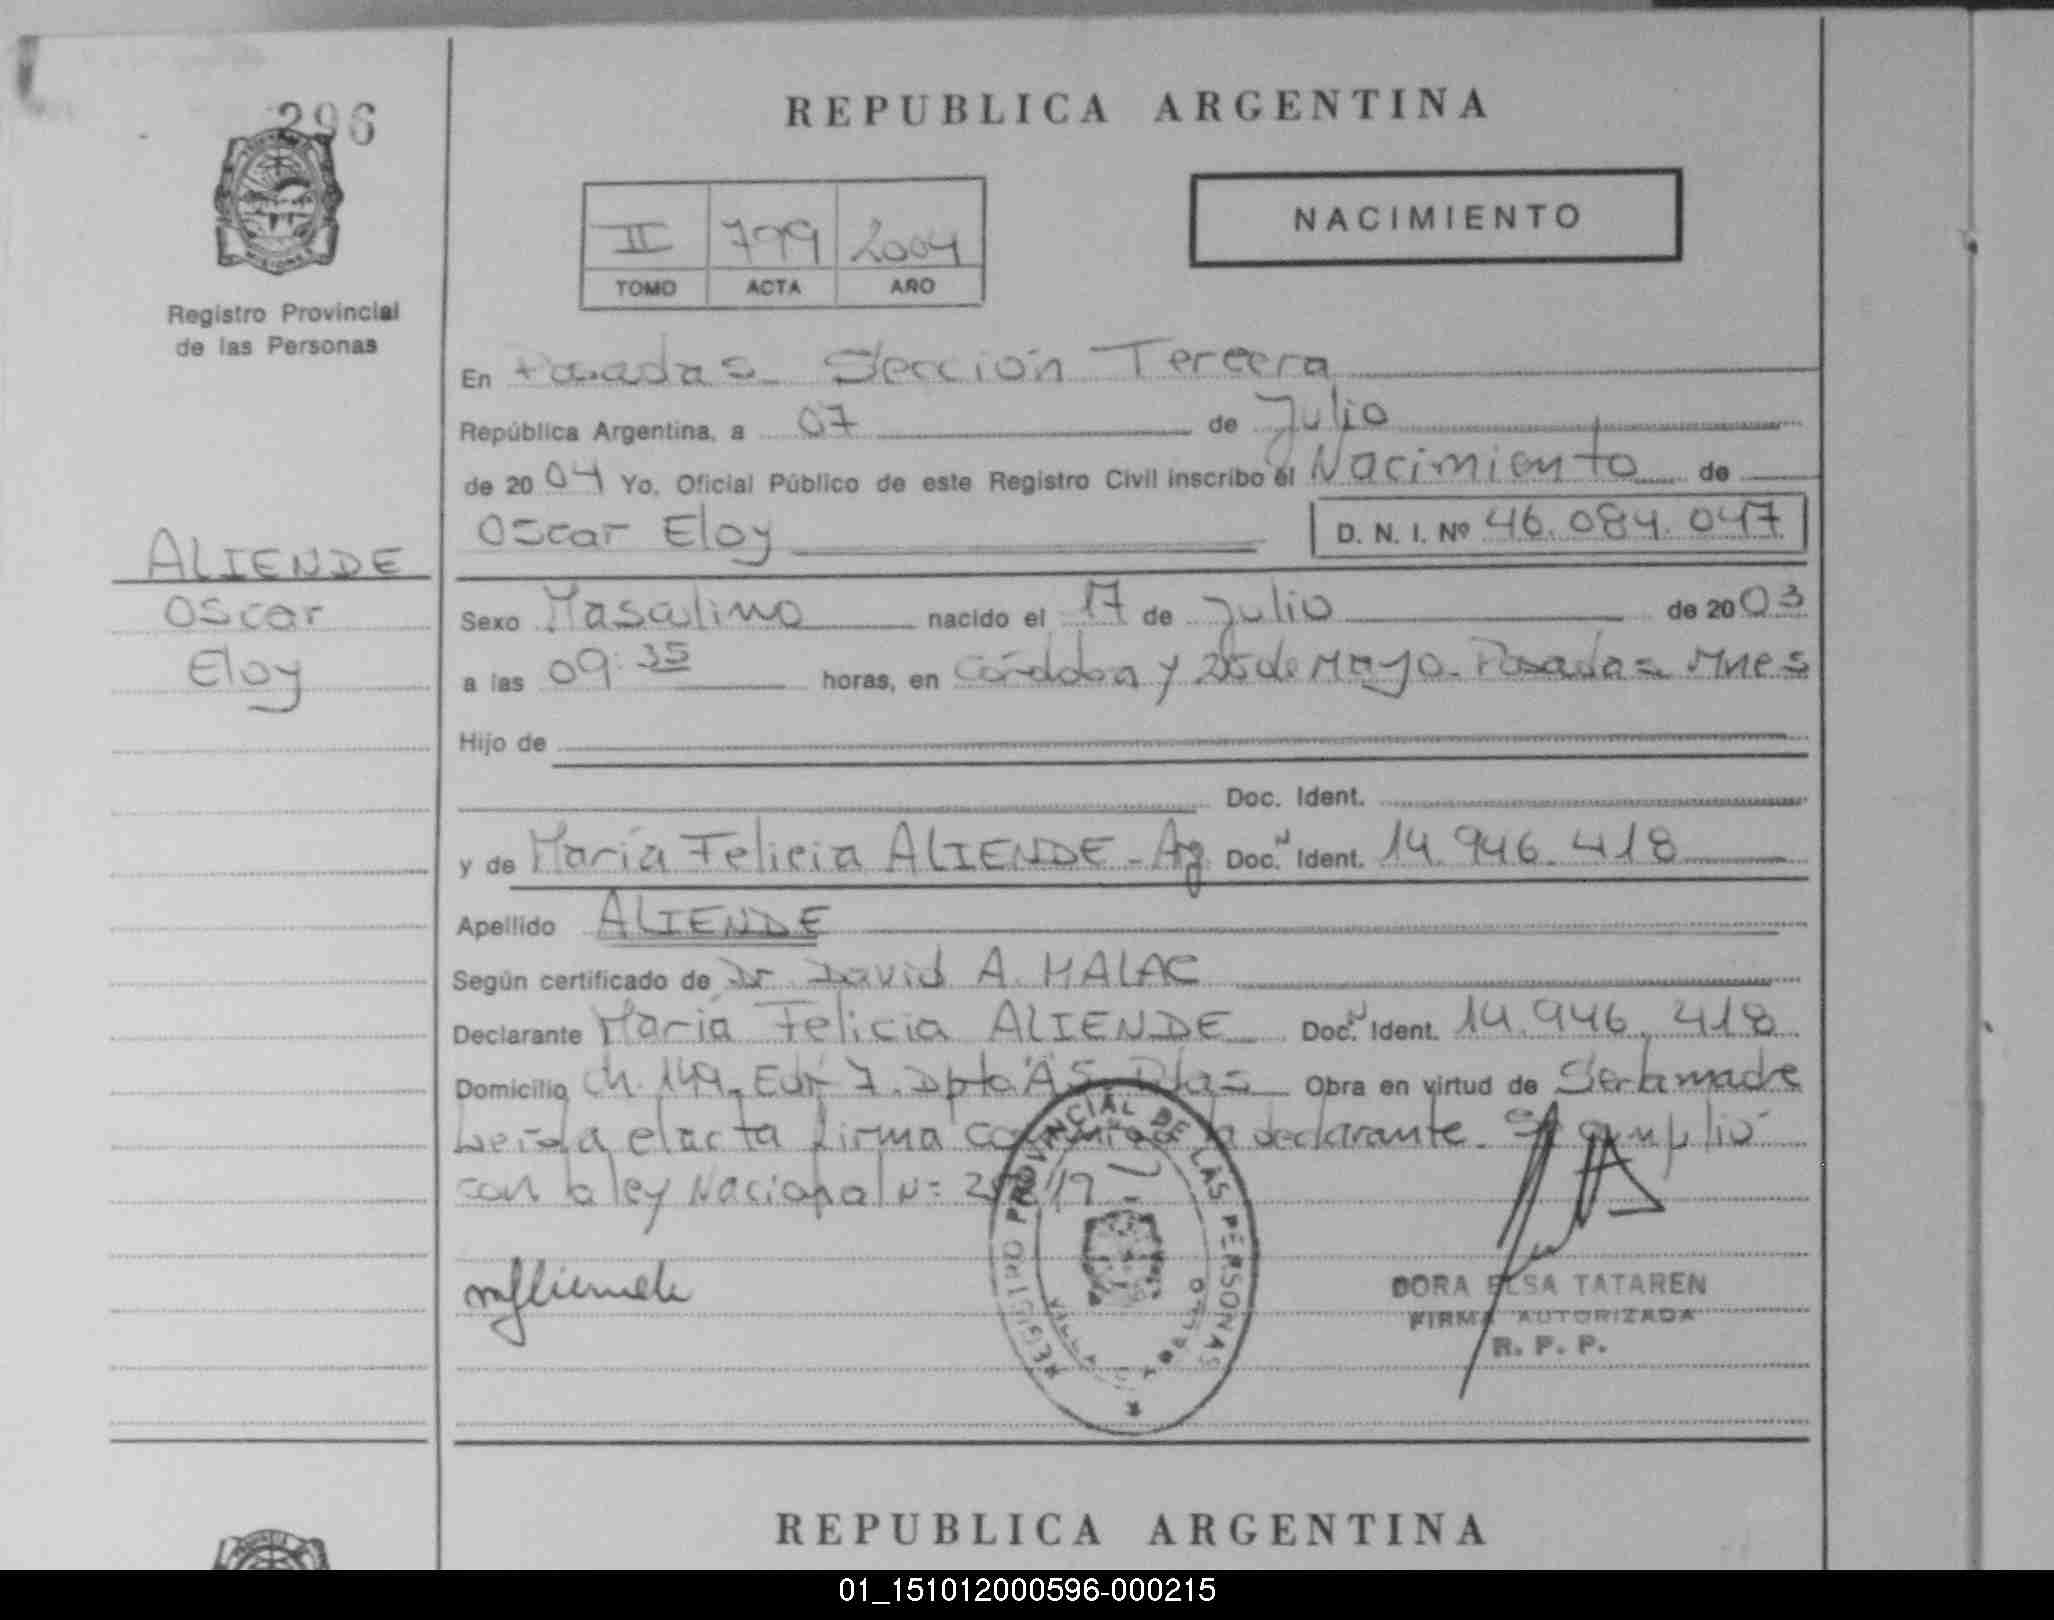 296
REPUBLICA ARGENTINA
NACIMIENTO
II 799 2004
TOMO ACTA AÑO
MISIONES
Registro Provincial
de las Personas
En Posadas Sección Tercera
República Argentina, a 07 de Julio
de 2004 Yo, Oficial Público de este Registro Civil inscribo el Nacimiento de
Oscar Eloy D. N. I. Nº 46.084.047
ALIENDE
Oscar
Eloy
Sexo Masculino nacido el 17 de Julio de 2003
a las 09:35 horas, en Córdoba y 25 de Mayo. Posadas Mnes
Hijo de
Doc. Ident.
y de María Felicia ALIENDE - Arg Doc. N Ident. 14.946.418
Apellido ALIENDE
Según certificado de Dr. David A. MALAC
Declarante María Felicia ALIENDE Doc. N Ident. 14.946.418
Domicilio Ch. 149. Edif 7. Dpto "A5" Pdas Obra en virtud de Ser la madre
Leída el acta firma conmigo la declarante. Se cumplió
con la ley Nacional Nº
REGISTRO PROVINCIAL DE LAS PERSONAS
mfaliende
DORA ELSA TATAREN
FIRMA AUTORIZADA
R. P. P.
REPUBLICA ARGENTINA
01_151012000596-000215